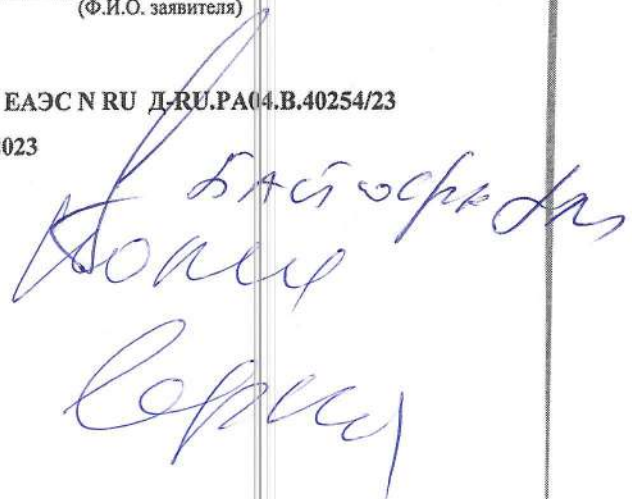 (Ф.И.О. заявителя)
ЕАЭС N RU Д-RU.РА04.В.40254/23
023
Копия
верна